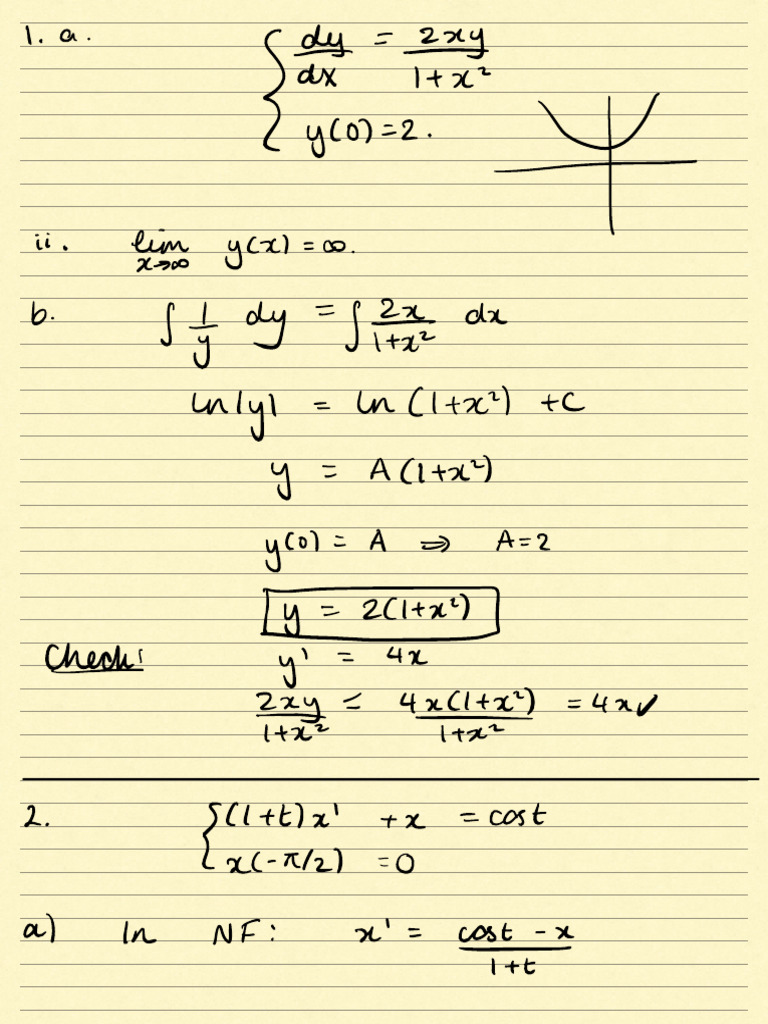 1. a. { dy/dx = 2xy/1+x²
y(0)=2.
ii. lim x→∞ y(x) = ∞.
b. ∫ 1/y dy = ∫ 2x/1+x² dx
ln|y| = ln (1+x²) + C
y = A(1+x²)
y(0) = A ⇒ A=2
y = 2(1+x²)
Check: y' = 4x
2xy/1+x² = 4x(1+x²)/1+x² = 4x ✓
2. { (1+t)x' + x = cost
x(-π/2) = 0
a) In NF: x' = cost - x/1+t